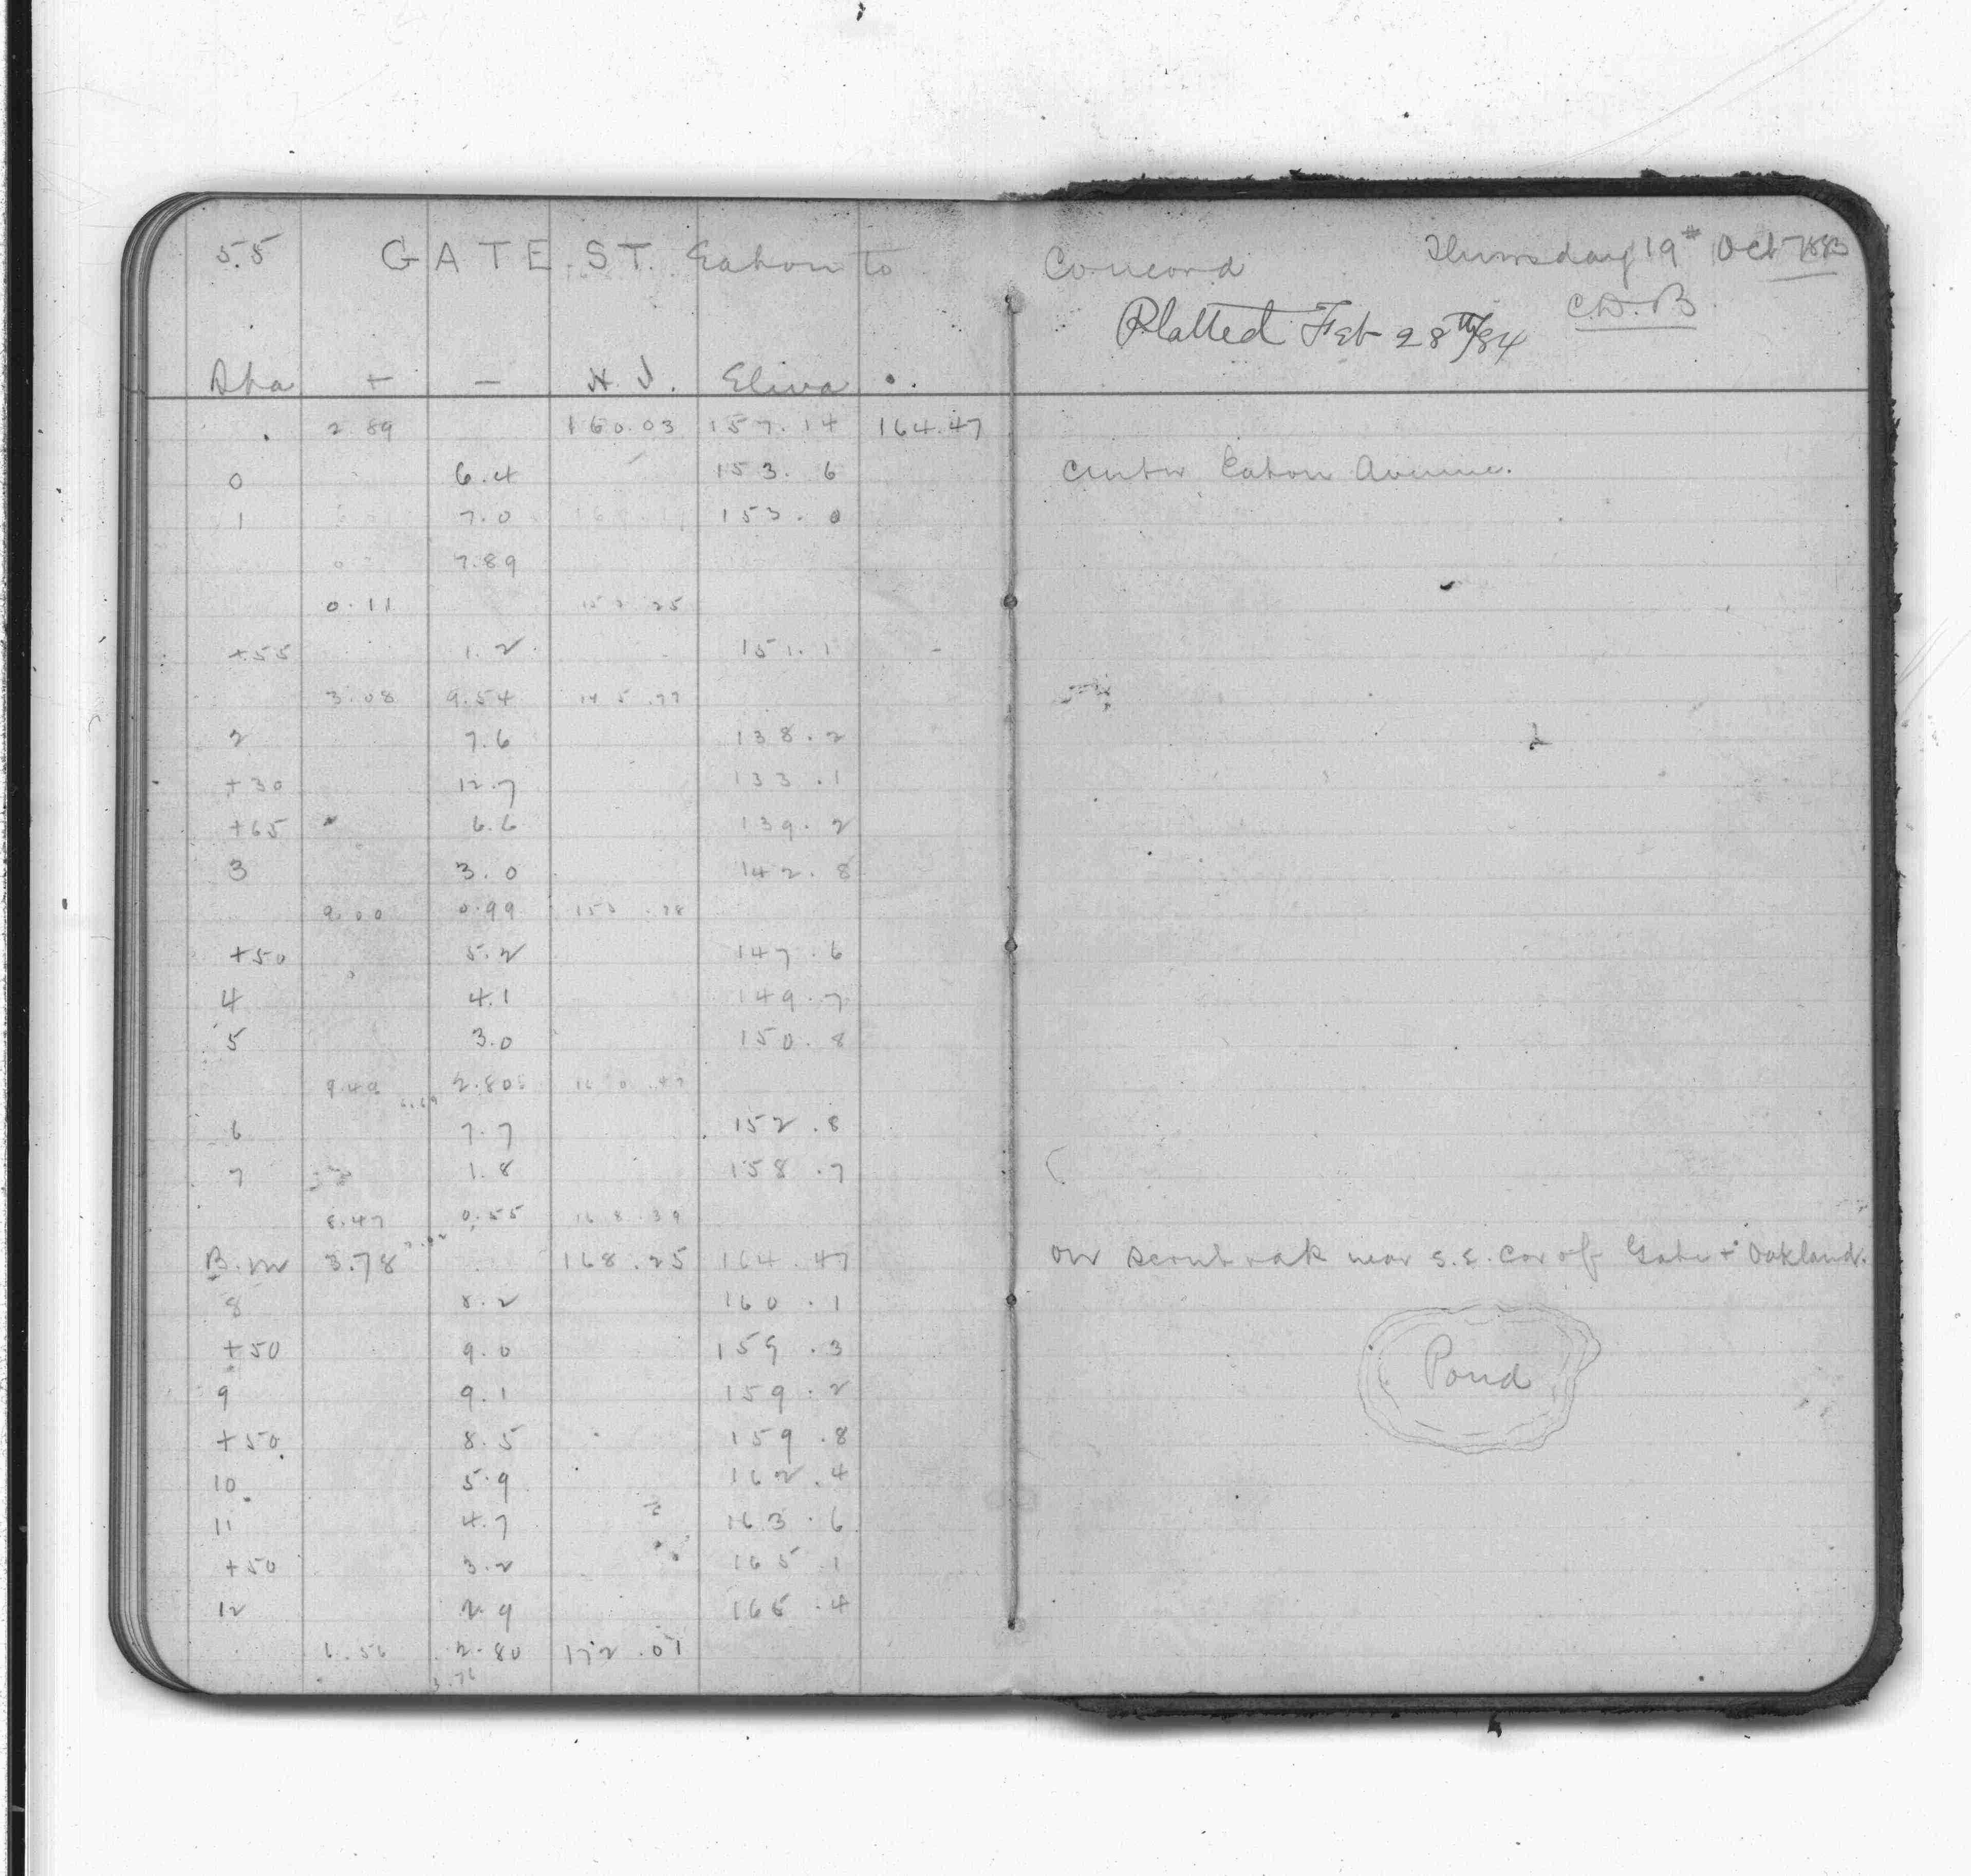 55 GATE ST. Eaton to Concord Thursday 19th Oct 1883
C.D.B.
Platted Feb 28th/84
Sta + - H.I. Eleva
2.89 160.03 157.14 164.47
0 6.4 153.6 Center Eaton Avenue.
1 7.0 153.0
7.89
0.11 152.25
+55 1.2 151.1
3.08 9.54 145.79
2 7.6 138.2
+30 12.7 133.1
+65 6.6 139.2
3 3.0 142.8
9.00 0.99 153.78
+50 5.2 147.6
4 4.1 149.7
5 3.0 150.8
9.49 2.80 160.47
6.69
6 7.7 152.8
7 1.8 158.7
8.47 0.55 168.39
7.92
B.M 3.78 168.25 164.47 on scrub oak near S.E. Cor of Gate + Oakland.
8 8.2 160.1
+50 9.0 159.3
9 9.1 159.2
+50 8.5 159.8
Pond
10 5.9 162.4
11 4.7 163.6
+50 3.2 165.1
12 2.9 165.4
6.56 2.80 172.01
3.76